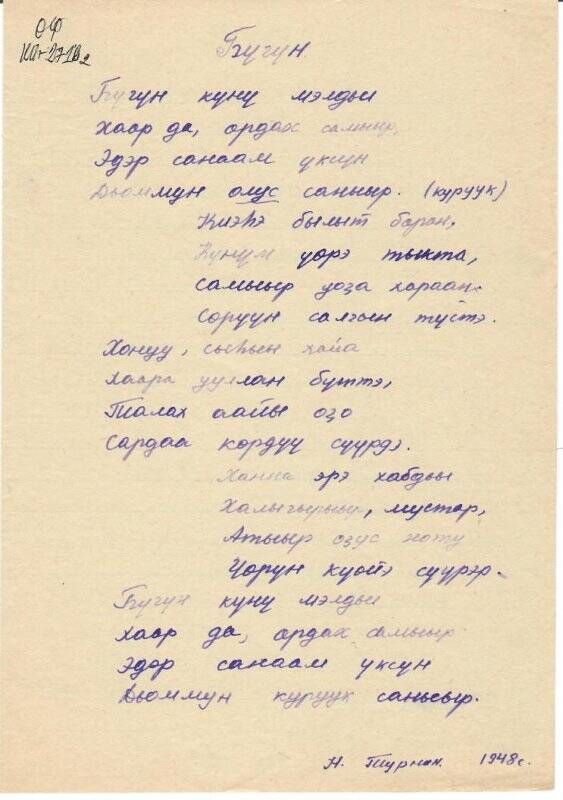 ОФ
КП-2718₂
Бүгүн
Бүгүн күнү мэлдьи
Хаар да, ардах самыыр,
Эдэр санаам үксүн
Дьоммун олус саныыр. (куруук)
Киэһэ былыт баран,
Күнүм үөрэ тыкта,
Самыыр уоҕа хараан
Сөрүүн салгын түстэ.
Хонуу, сыһыы хайа
Хаара ууллан бүттэ,
Тыалах аайы оҕо
Сардаа көрдүү сүүрдэ.
Ханна эрэ хабдьы
Халыгырыыр, мустар,
Атыыр оҕус
Үөрүн күөйэ сүүрэр.
Бүгүн күнү мэлдьи
Хаар да, ардах самыыр
Эдэр санаам үксүн
Дьоммун куруук саныыр.
Н. 1948 г.